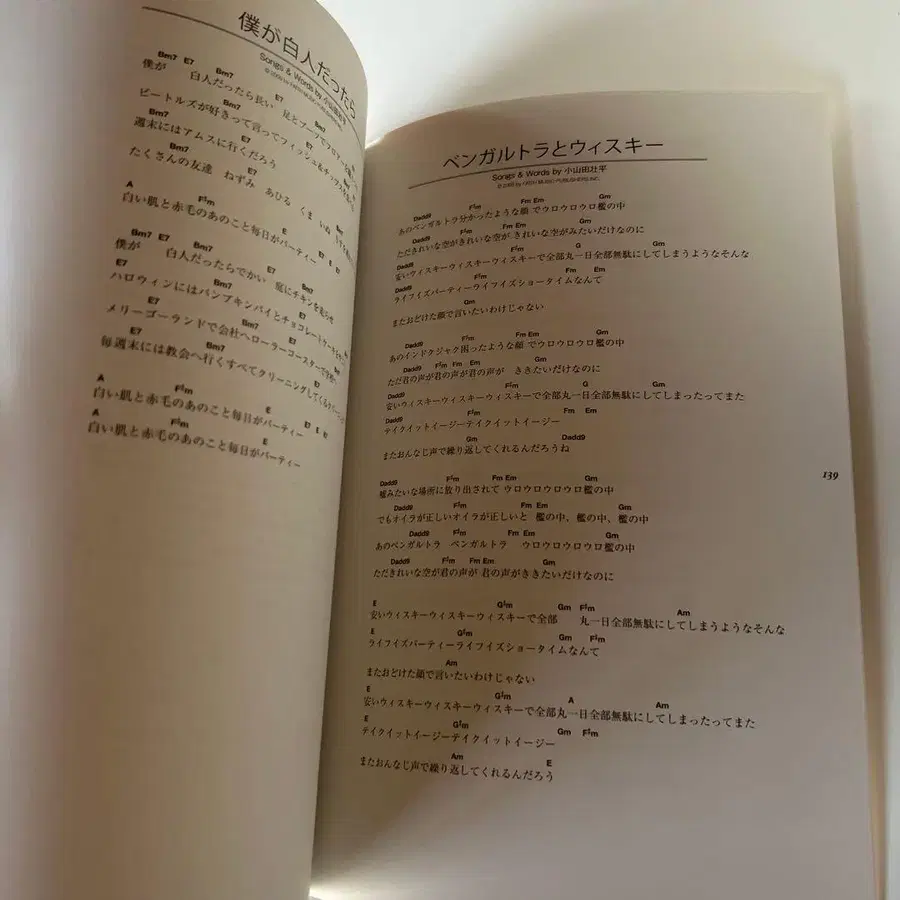 僕が白人だったら
Songs & Words by 小山田壮平
Bm7 E7 Bm7 E7 Bm7
僕が 白人だったら長い 足とブーツでフロアーを
Bm7 Bm7 E7
ビートルズが好きって言ってフィッシュ&チップスを
Bm7 E7
週末にはアムスに行くだろう
E7
たくさんの友達 ねずみ あひる くま いぬ
A F#m E E7 E7
白い肌と赤毛のあのこと毎日がパーティー
Bm7 E7 Bm7 E7 Bm7
僕が 白人だったらでかい 庭にチキンを走らせ
E7 Bm7 E7
ハロウィンにはパンプキンパイとチョコレートケーキを
E7 Bm7 E7 Bm7
メリーゴーランドで会社へローラーコースターで
E7 Bm7 E7
毎週末には教会へ行くすべてクリーニングしてくる
A F#m E E7 E7
白い肌と赤毛のあのこと毎日がパーティー
A F#m E
白い肌と赤毛のあのこと毎日がパーティー
ベンガルトラとウィスキー
Songs & Words by 小山田壮平
© 2009 by FATIH MUSIC PUBLISHERS INC.
Dadd9 F#m Fm Em Gm
あのベンガルトラ分かったような顔 でウロウロウロ檻の中
Dadd9 F#m Fm Em Gm
ただきれいな空がきれいな空が きれいな空がみたいだけなのに
Dadd9 F#m G Gm
安いウィスキーウィスキーウィスキーで全部丸一日全部無駄にしてしまうようなそんな
Dadd9 F#m Fm Em
ライフイズパーティーライフイズショータイムなんて
Gm
またおどけた顔で言いたいわけじゃない
Dadd9 F#m Fm Em Gm
あのインドクジャク困ったような顔 でウロウロウロ檻の中
Dadd9 F#m Fm Em Gm
ただ君の声が君の声が君の声が ききたいだけなのに
Dadd9 F#m G Gm
安いウィスキーウィスキーウィスキーで全部丸一日全部無駄にしてしまったってまた
Dadd9 F#m Fm Em
テイクイットイージーテイクイットイージー
Gm Dadd9
またおんなじ声で繰り返してくれるんだろうね
Dadd9 F#m Fm Em Gm
嘘みたいな場所に放り出されて ウロウロウロウロ檻の中
Dadd9 F#m Fm Em Gm
でもオイラが正しいオイラが正しいと 檻の中、檻の中、檻の中
Dadd9 F#m Fm Em Gm
あのベンガルトラ ベンガルトラ ウロウロウロウロ檻の中
Dadd9 F#m Fm Em Gm
ただきれいな空が君の声が 君の声がききたいだけなのに
E G#m Gm F#m Am
安いウィスキーウィスキーウィスキーで全部 丸一日全部無駄にしてしまうようなそんな
E G#m Gm F#m
ライフイズパーティーライフイズショータイムなんて
Am
またおどけた顔で言いたいわけじゃない
E G#m A Am
安いウィスキーウィスキーウィスキーで全部丸一日全部無駄にしてしまったってまた
E G#m Gm F#m
テイクイットイージーテイクイットイージー
Am E
またおんなじ声で繰り返してくれるんだろう
139